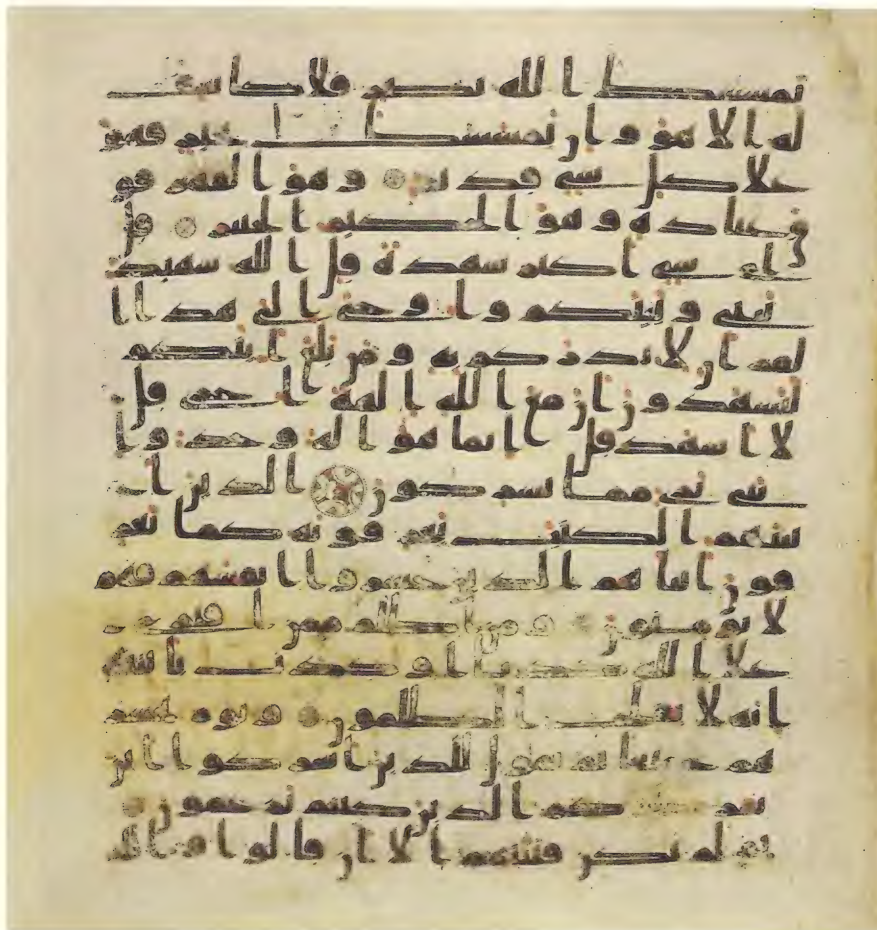 يمسسك الله بضر فلا كاشف
له الا هو وان يمسسك بخير فهو
علا كل شي قدير وهو القهر فو
ق عباده وهو الحكيم الخبير قل
اي شي اكبر شهدة قل الله شهيد
بيني وبينكم واوحي الي هذا ا
لقرن لانذركم به ومن بلغ اينكم
لتشهدون ان مع الله الهة اخرى قل
لا اشهد قل انما هو اله وحد وا
نني بري مما تشركون الذين ا
تينهم الكتب يعرفونه كما يعر
فون ابناهم الذين خسروا انفسهم فهم
لا يومنون ومن اظلم ممن افترى
علا الله كذبا او كذب بايته
انه لا يفلح الظلمون ويوم نحشر
هم جميعا ثم نقول للذين اشركوا اين
شركاوكم الذين كنتم تزعمون
ثم لم تكن فتنتهم الا ان قالوا والله